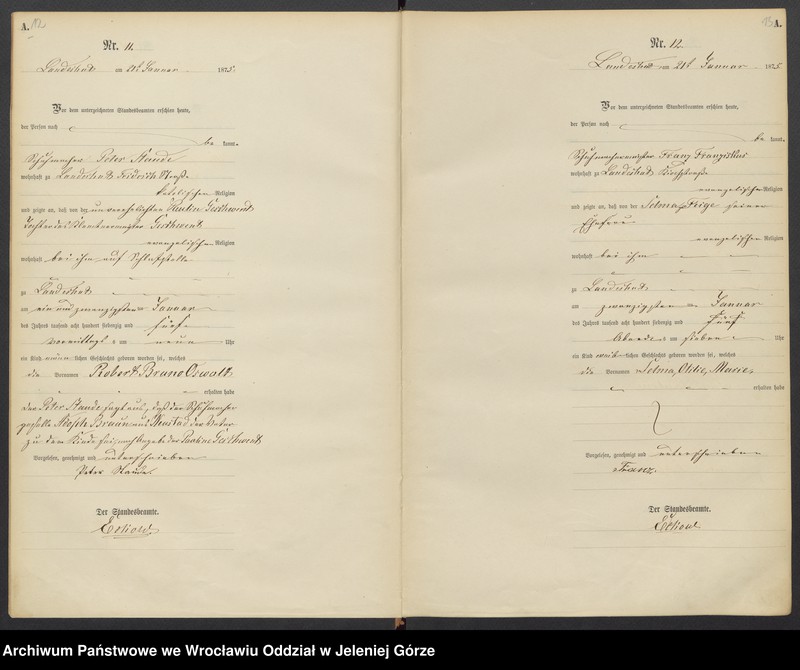 A. 12
Nr. 11.
Landeshut am 21t Januar 1875.
Vor dem unterzeichneten Standesbeamten erschien heute,
der Person nach
be kannt.
Schuhmacher Peter Staude
wohnhaft zu Landeshut Friedrich Straße
katolischen Religion
und zeigte an, daß von der unverehelichten Gerthwent
Tochter des Gerthwent
evangelischen Religion
wohnhaft bei ihm auf Schlafstelle
zu Landeshut
am ein und zwanzigsten Januar
des Jahres tausend acht hundert siebenzig und fünf
vormittags um neun Uhr
ein Kind männlichen Geschlechts geboren worden sei, welches
die Vornamen Robert Bruno Oswald
erhalten habe
der Peter Staude sagt aus, daß der Schuhmacher
geselle Braun aus Neustad der Vater
zu dem Kinde sei, nach Angabe der Pauline Gerthwent
Vorgelesen, genehmigt und unterschrieben
Peter Staude.
Der Standesbeamte.
13 A.
Nr. 12.
Landeshut am 21t Januar 1875
Vor dem unterzeichneten Standesbeamten erschien heute,
der Person nach
be kannt.
Schuhmachermeister Franz Franziskus
wohnhaft zu Landeshut Kirchstraße
evangelischen Religion
und zeigte an, daß von der Selma, Feige seiner
Ehefrau
evangelischen Religion
wohnhaft bei ihm
zu Landeshut
am zwanzigsten Januar
des Jahres tausend acht hundert siebenzig und fünf
Abends um sieben Uhr
ein Kind weiblichen Geschlechts geboren worden sei, welches
die Vornamen Selma, Otilie, Marie,
erhalten habe
Vorgelesen, genehmigt und unterschrieben
Franz.
Der Standesbeamte.
Archiwum Państwowe we Wrocławiu Oddział w Jeleniej Górze